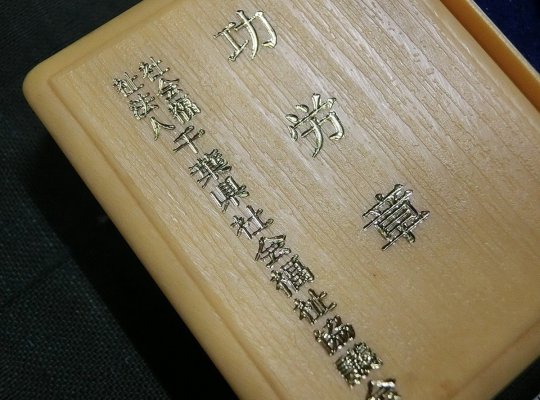 功労章
社会福祉法人千葉県社会福祉協議会